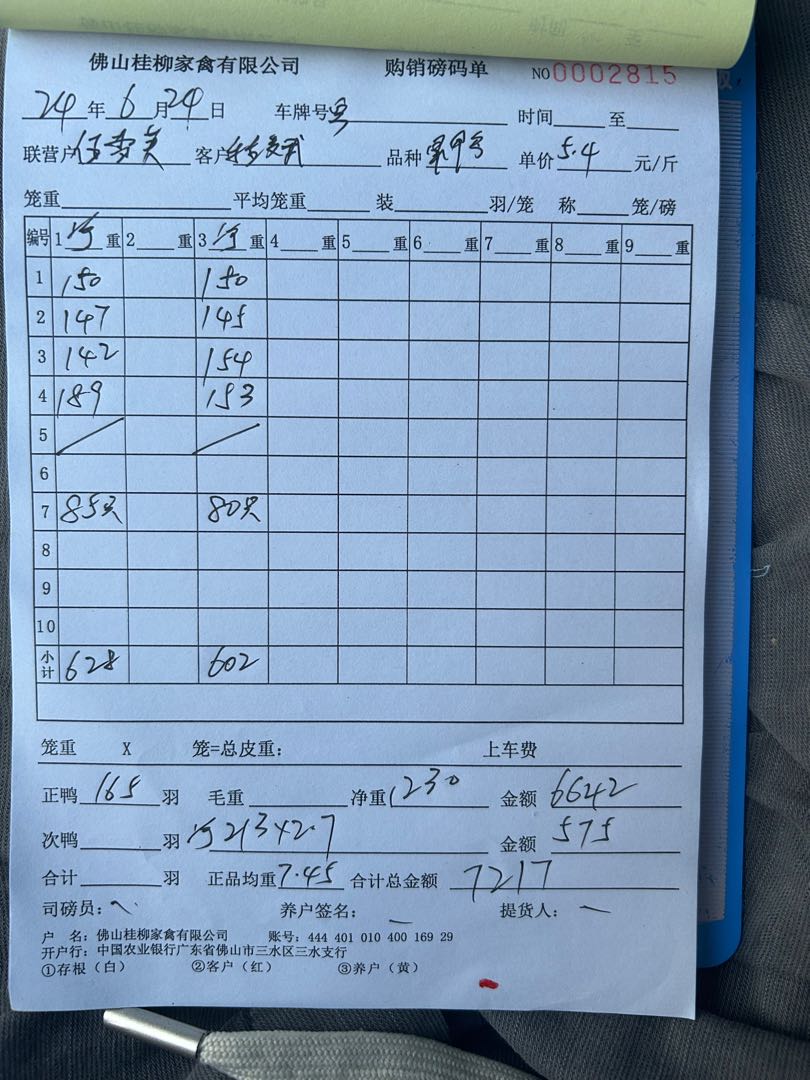 佛山桂柳家禽有限公司 购销磅码单 NO 0002815
24 年 6 月 24 日 车牌号 时间 至
联营户 客户 品种 单价 5.4 元/斤
笼重 平均笼重 装 羽/笼 称 笼/磅
编号 1 重 2 重 3 重 4 重 5 重 6 重 7 重 8 重 9 重
1 150 150
2 147 145
3 142 154
4 189 153
5
6
7 85只 80只
8
9
10
小计 628 602
笼重 X 笼=总皮重: 上车费
正鸭 165 羽 毛重 净重 1230 金额 6642
次鸭 羽 金额 575
合计 羽 正品均重 7.45 合计总金额 7217
司磅员: 养户签名: 提货人:
户 名: 佛山桂柳家禽有限公司 账号: 444 401 010 400 169 29
开户行: 中国农业银行广东省佛山市三水区三水支行
①存根(白) ②客户(红) ③养户(黄)